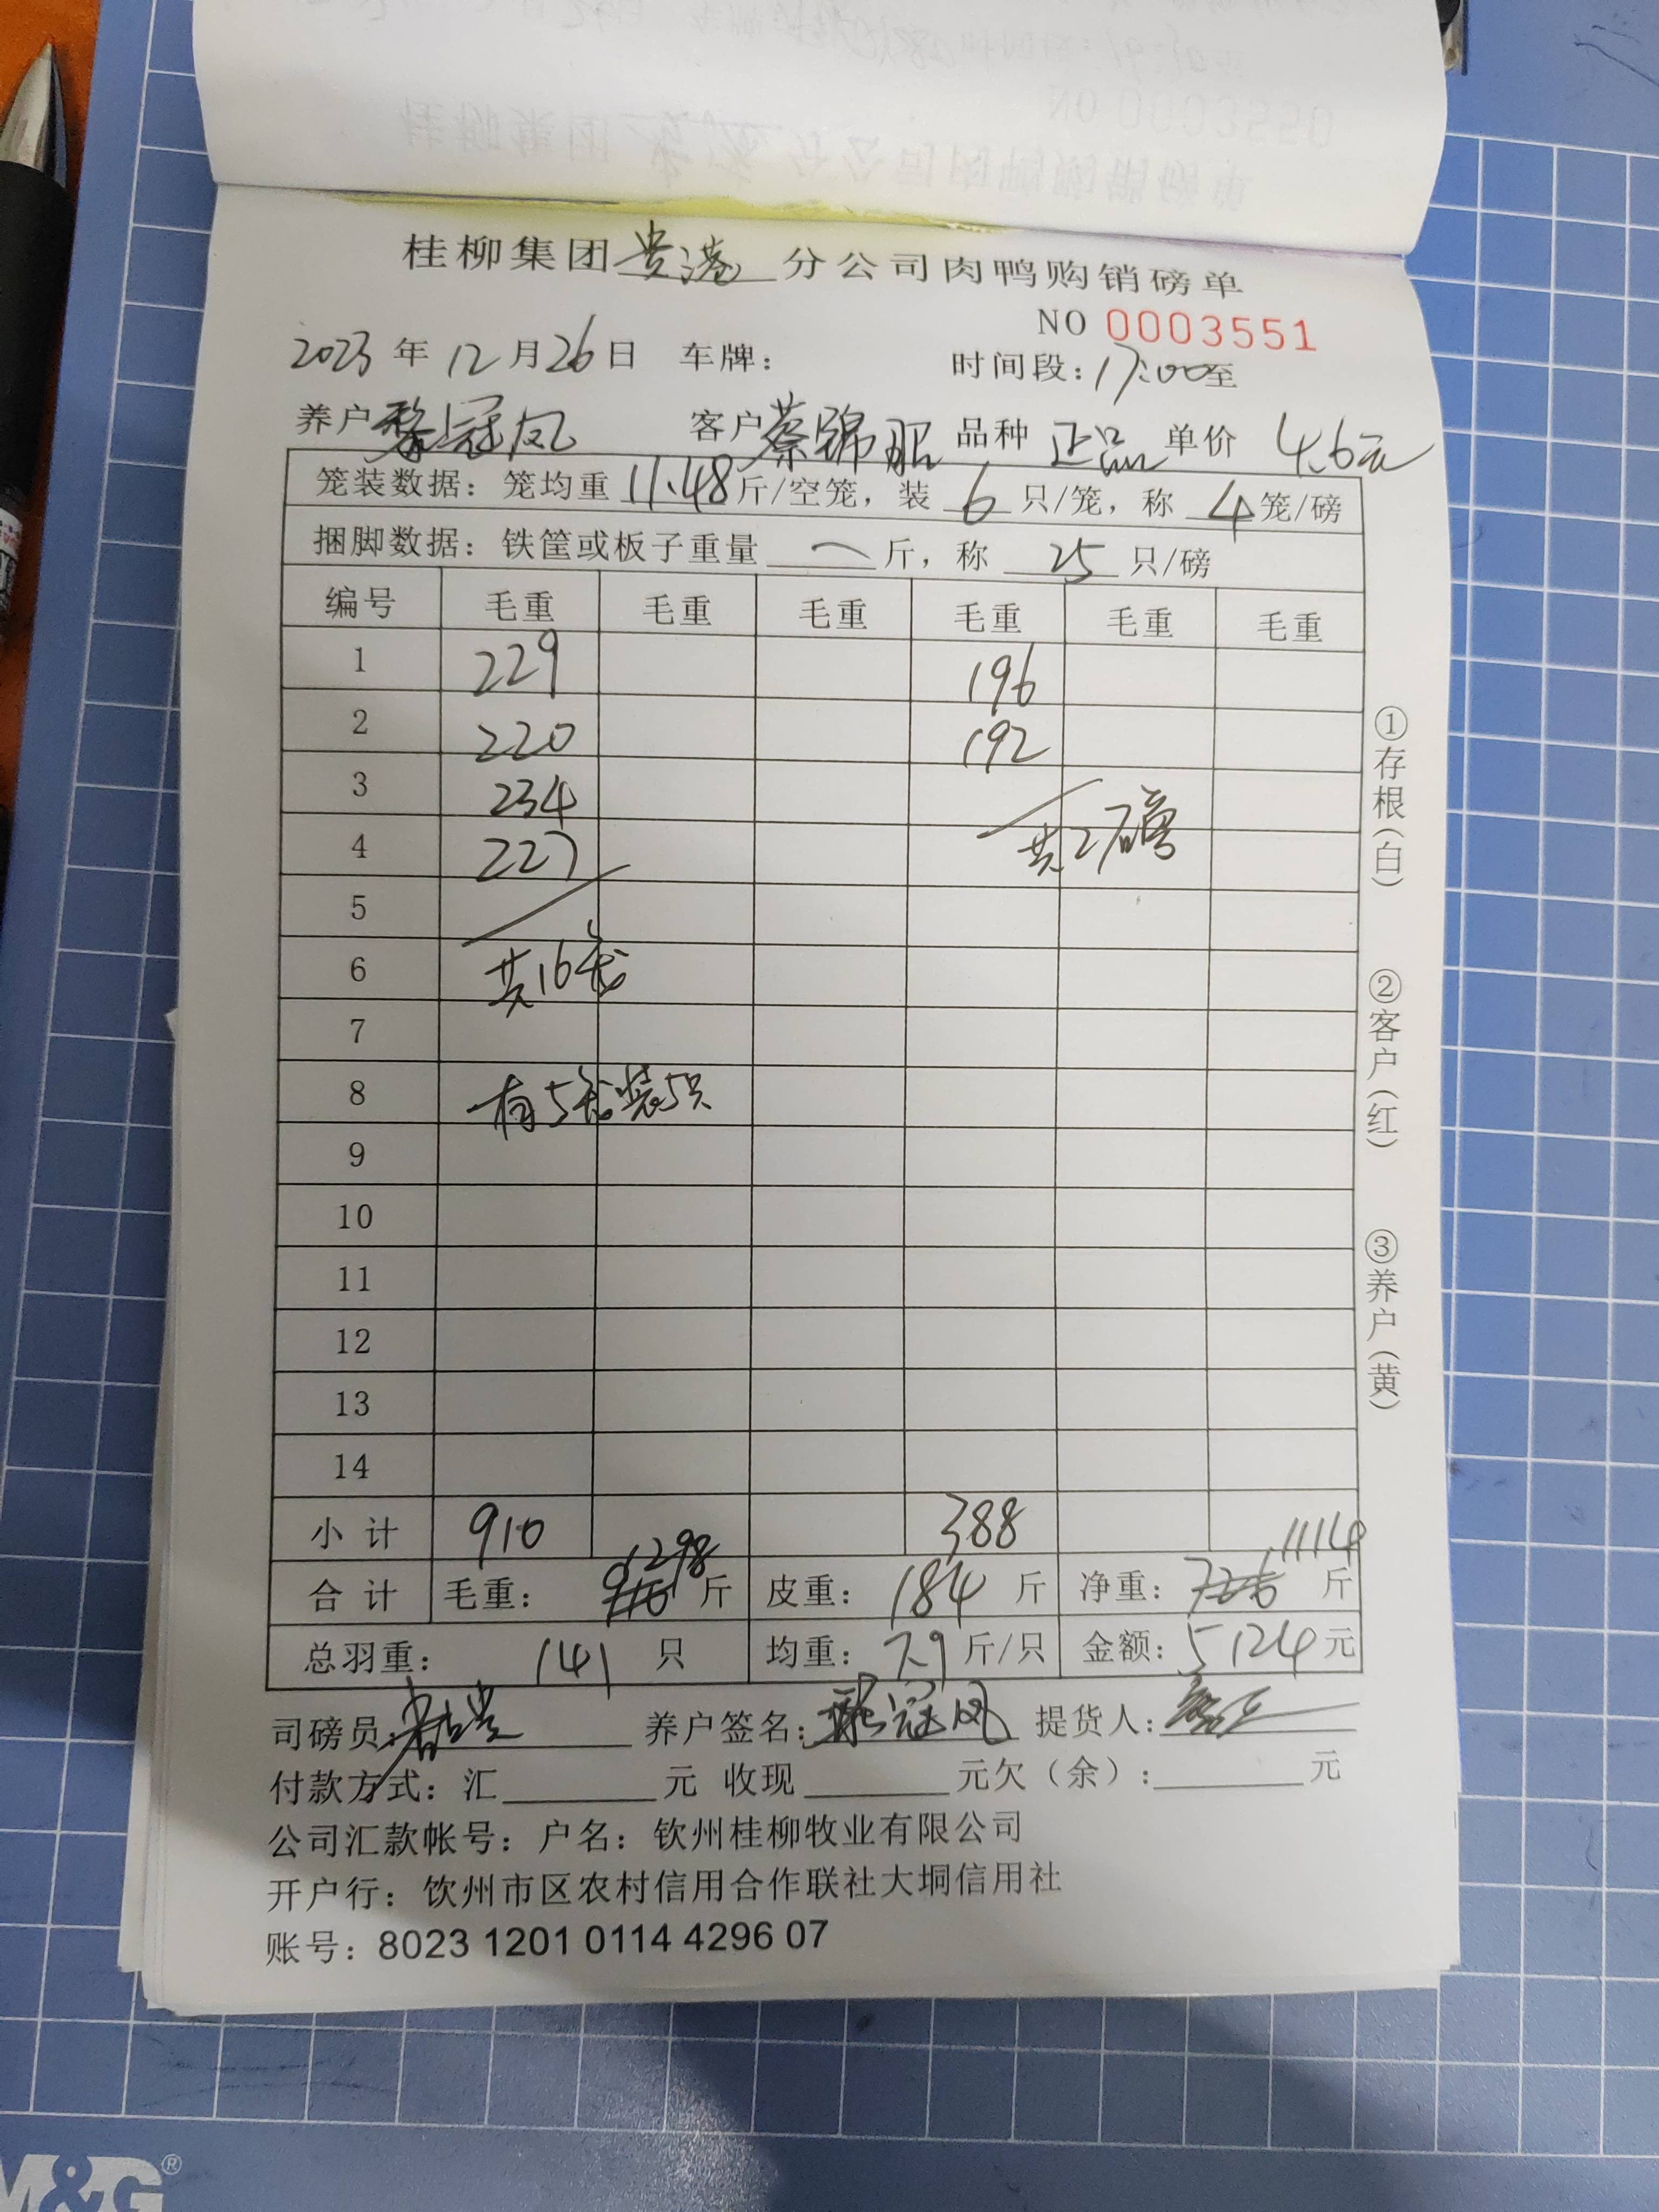 桂柳集团贵港分公司肉鸭购销磅单
NO 0003551
2023年12月26日 车牌: 时间段:17:00至
养户黎冠凤 客户蔡锦昭 品种 正品 单价 4.6元
笼装数据: 笼均重 11.48斤/空笼, 装 6 只/笼, 称 4笼/磅
捆脚数据: 铁筐或板子重量 一 斤, 称 25 只/磅
编号 毛重 毛重 毛重 毛重 毛重 毛重
1 229 196
2 220 192
3 234
4 227 共2磅
5
6 共16笼
7
8 有5笼装5只
9
10
11
12
13
14
小计 910 388
合计 毛重: 1298斤 皮重: 184斤 净重: 1114斤
总羽重: 141 只 均重: 7.9斤/只 金额: 5124元
司磅员: 养户签名: 冠凤 提货人:
付款方式: 汇 元 收现 元欠(余): 元
公司汇款帐号: 户名: 钦州桂柳牧业有限公司
开户行: 钦州市区农村信用合作联社大垌信用社
账号: 8023 1201 0114 4296 07
①存根(白)
②客户(红)
③养户(黄)
M&G®